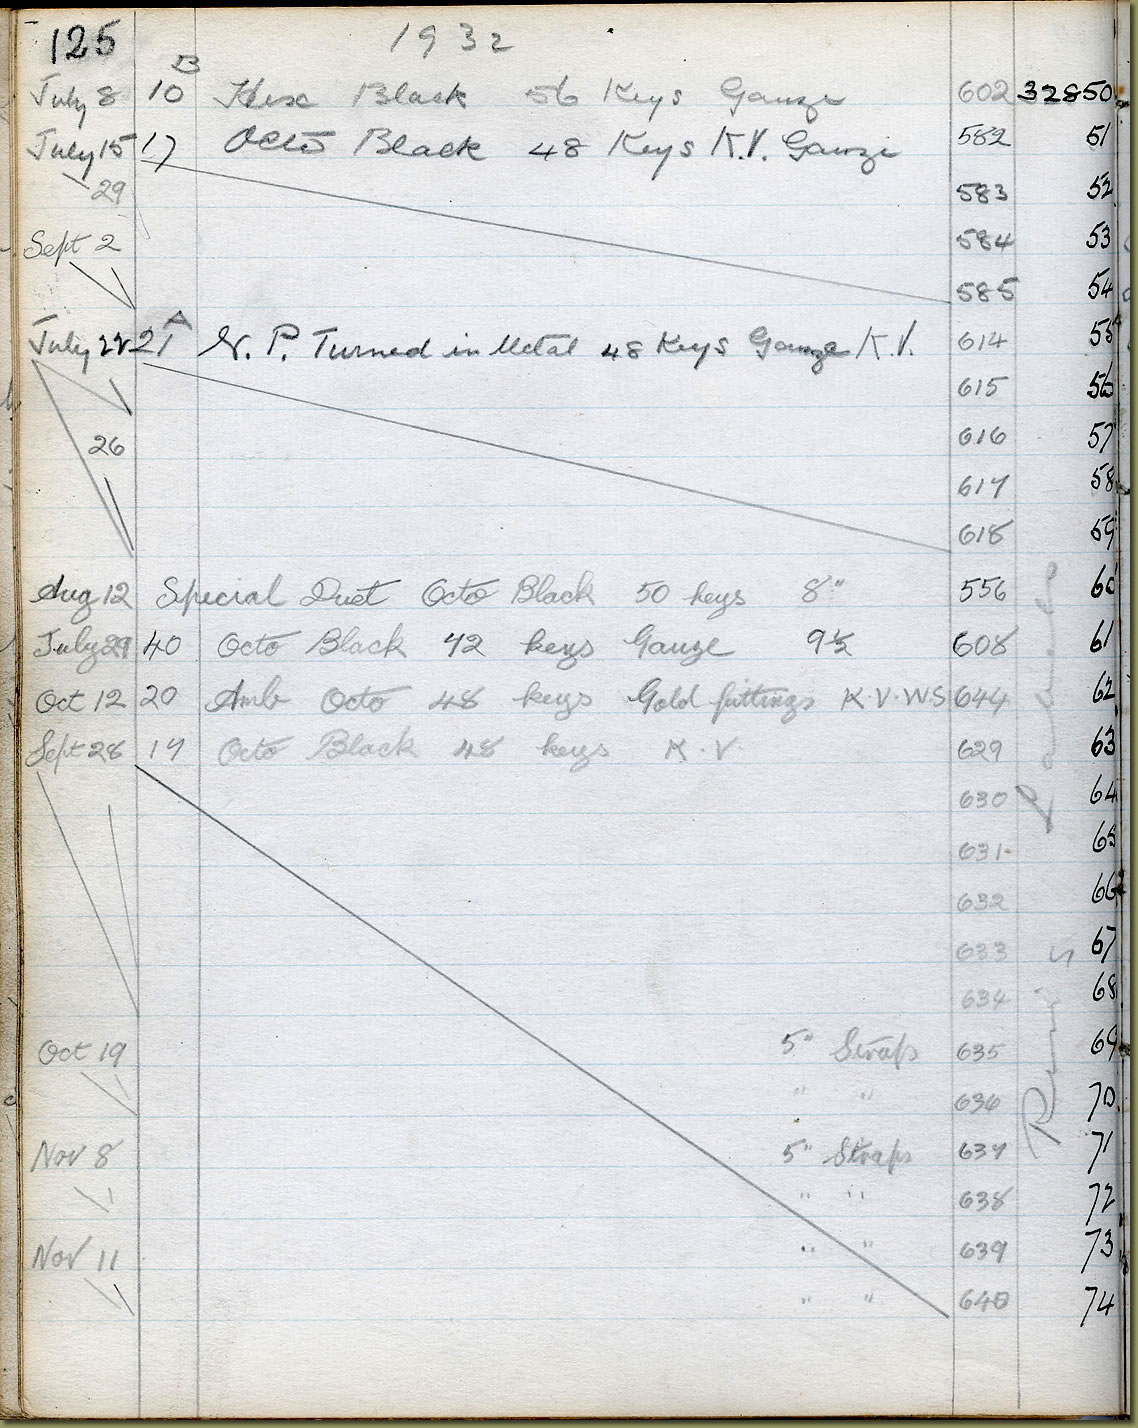 125 1932
July 8 10 B Hex Black 56 Keys Gauze 602 32850
July 15 17 Octo Black 48 Keys K.V. Gauze 582 51
29 583 52
Sept 2 584 53
585 54
July 22 21 A N. P. Turned in Metal 48 Keys Gauze K.V. 614 55
615 56
26 616 57
617 58
618 59
Aug 12 Special Duet Octo Black 50 keys 8" 556 60
July 29 40 Octo Black 42 keys Gauze 9½ 608 61
Oct 12 20 Amb Octo 48 keys Gold fittings K.V.W.S 644 62
Sept 28 17 Octo Black 48 keys K.V. 629 63
630 64
631 65
632 66
633 67
634 68
Oct 19 5" Straps 635 69
" " 636 70
Nov 8 5" Straps 637 71
" " 638 72
Nov 11 " " 639 73
" " 640 74